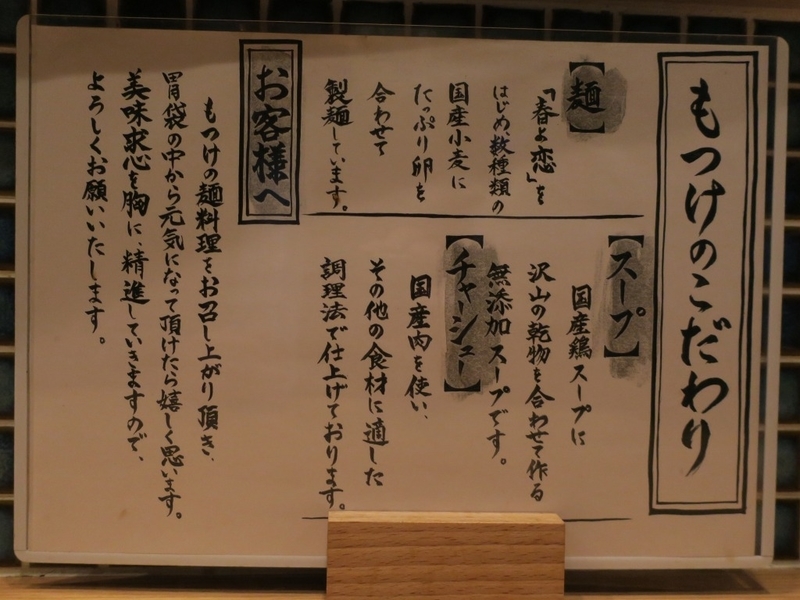 もつけのこだわり
【麺】
「春よ恋」を
はじめ、数種類の
国産小麦に
たっぷり卵を
合わせて
製麺しています。
【スープ】
国産鶏スープに
沢山の乾物を合わせて作る
無添加スープです。
【チャーシュー】
国産肉を使い、
その他の食材に適した
調理法で仕上げております。
お客様へ
もつけの麺料理をお召し上がり頂き、
胃袋の中から元気になって頂けたら嬉しく思います。
美味求心を胸に、精進していきますので、
よろしくお願いいたします。